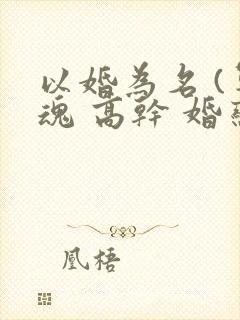 以婚為名 (
魂 高幹 婚
凰梧